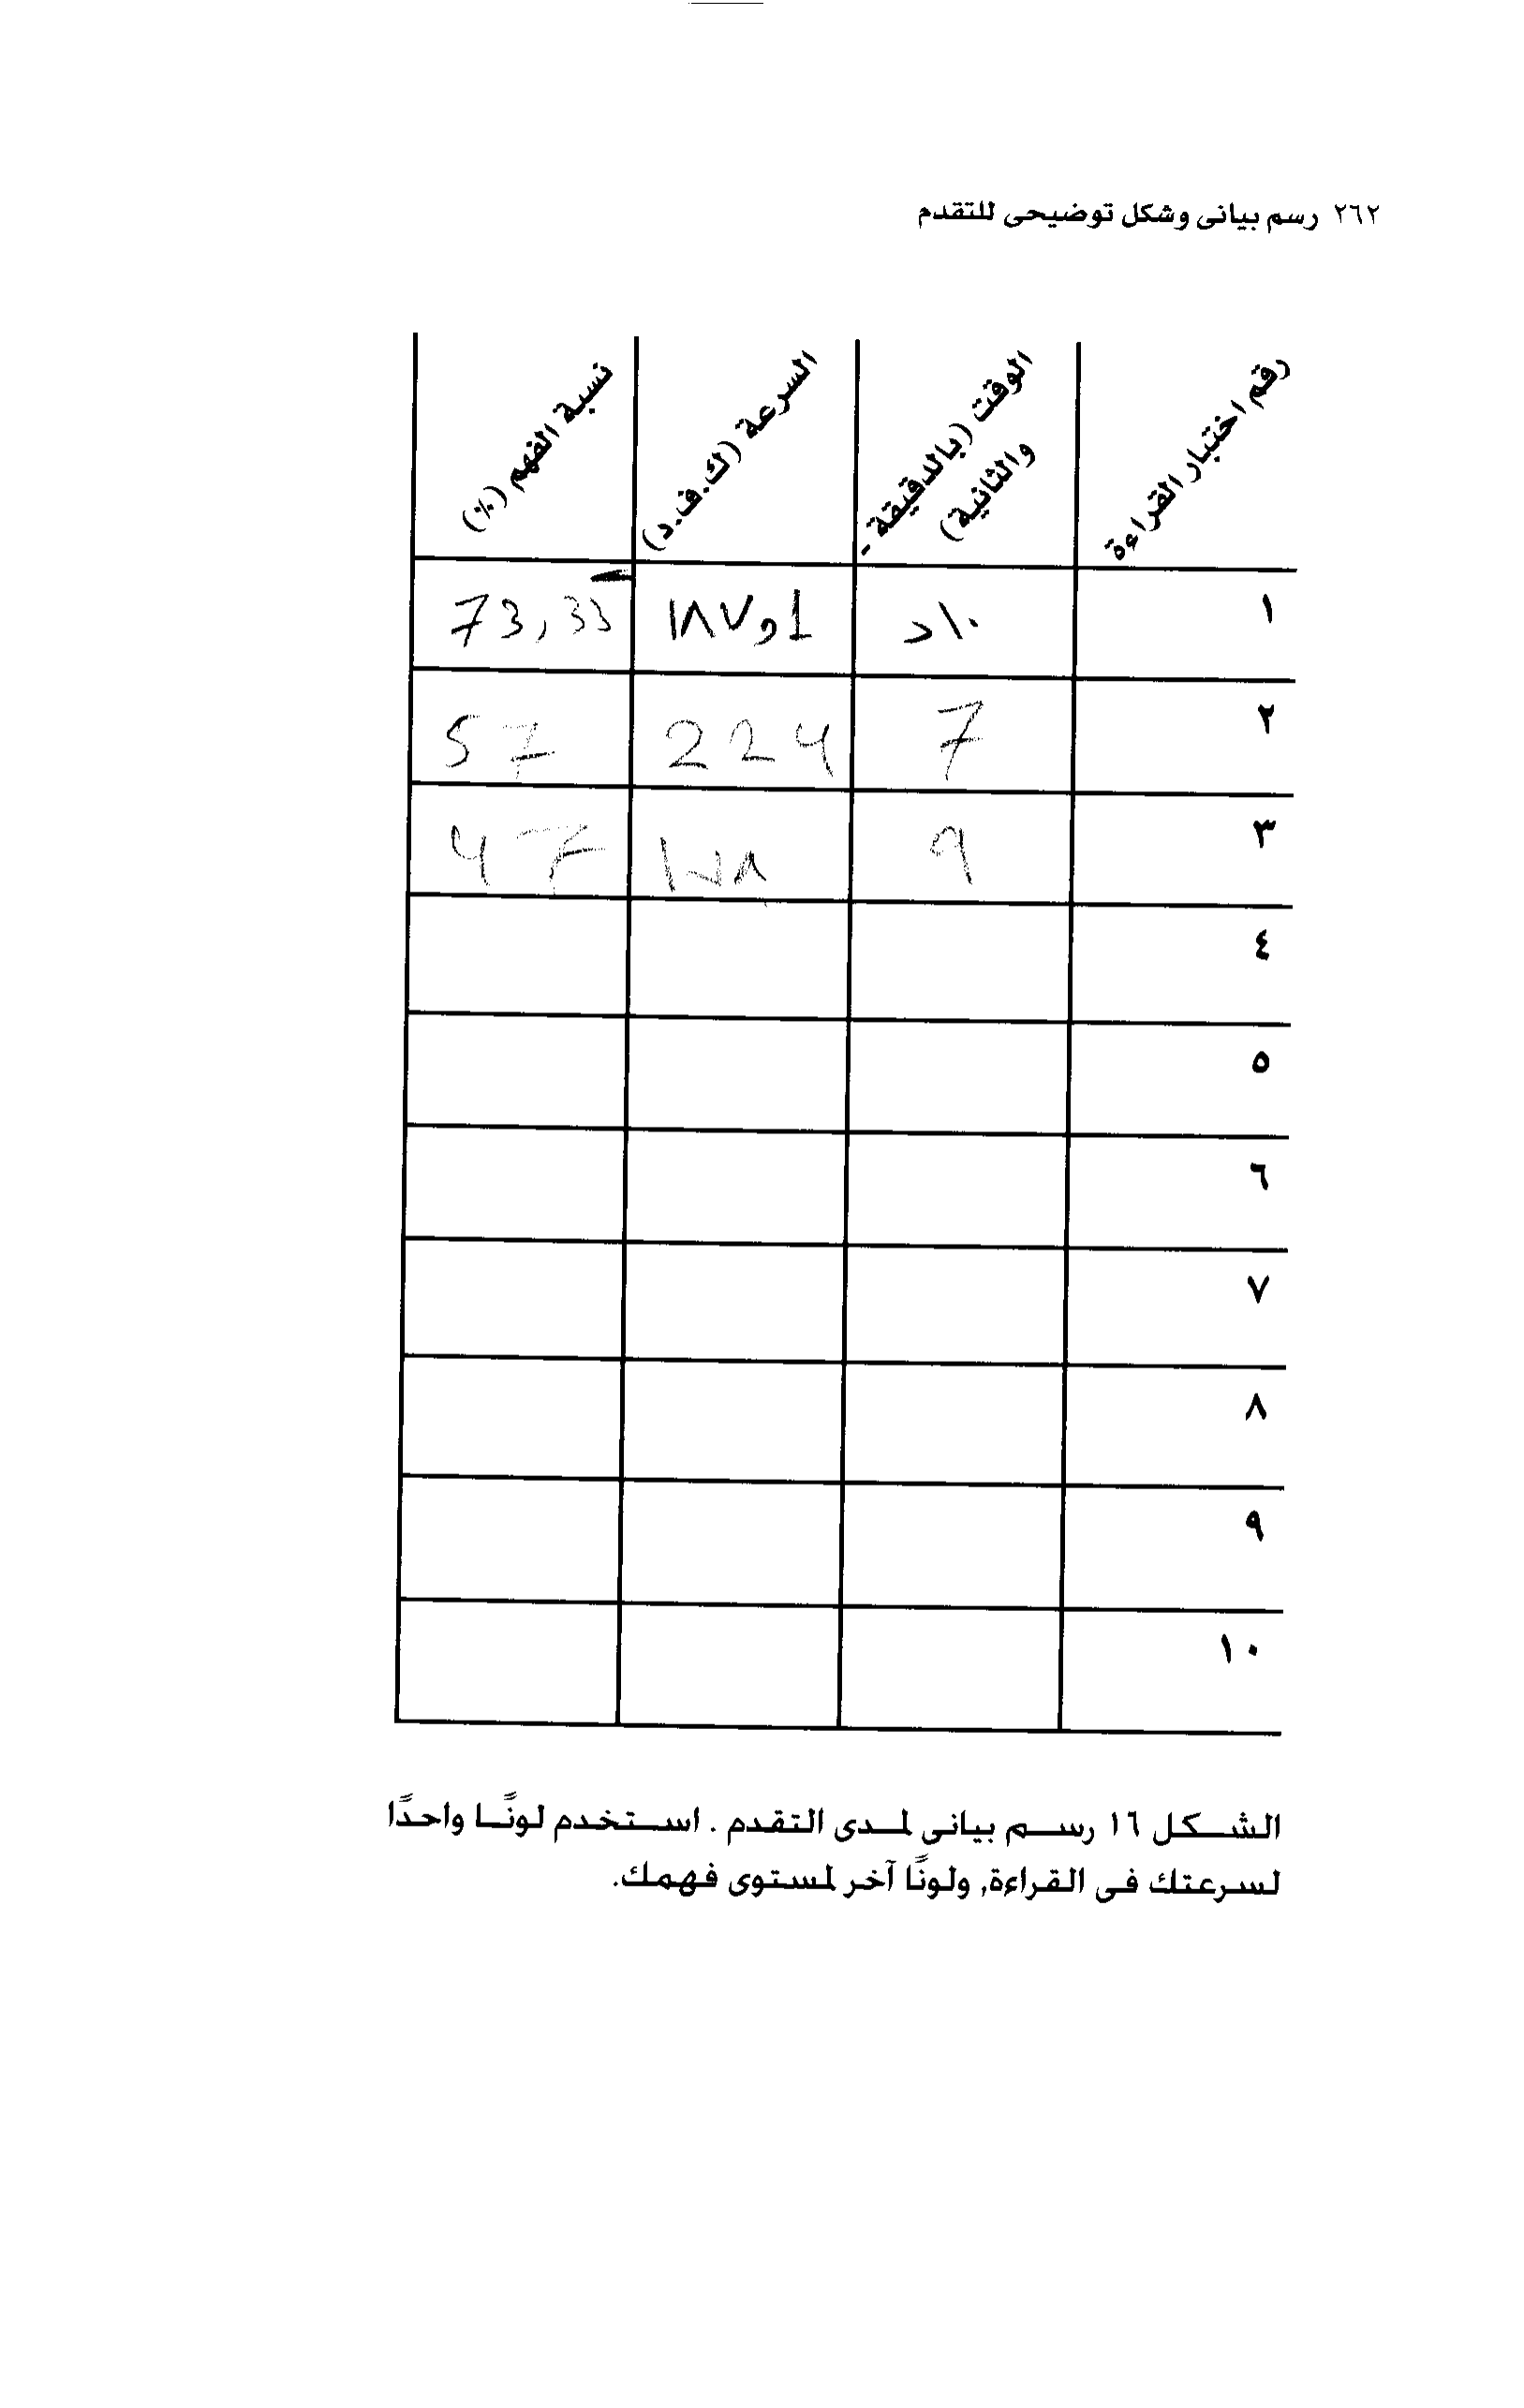 ٢٦٢ رسم بيانى وشكل توضيحى للتقدم
رقم اختبار القراءة
الوقت (بالدقيقة -
والثانية)
السرعة (ك.ف.د)
نسبة الفهم (٪)
١ ١٨٧و1 73,33
٢ 7 224 57
٣ 9 47
٤
٥
٦
٧
٨
٩
١٠
الشكل ١٦ رسم بيانى لمدى التقدم . استخدم لونًا واحدًا
لسرعتك فى القراءة, ولونًا آخر لمستوى فهمك.